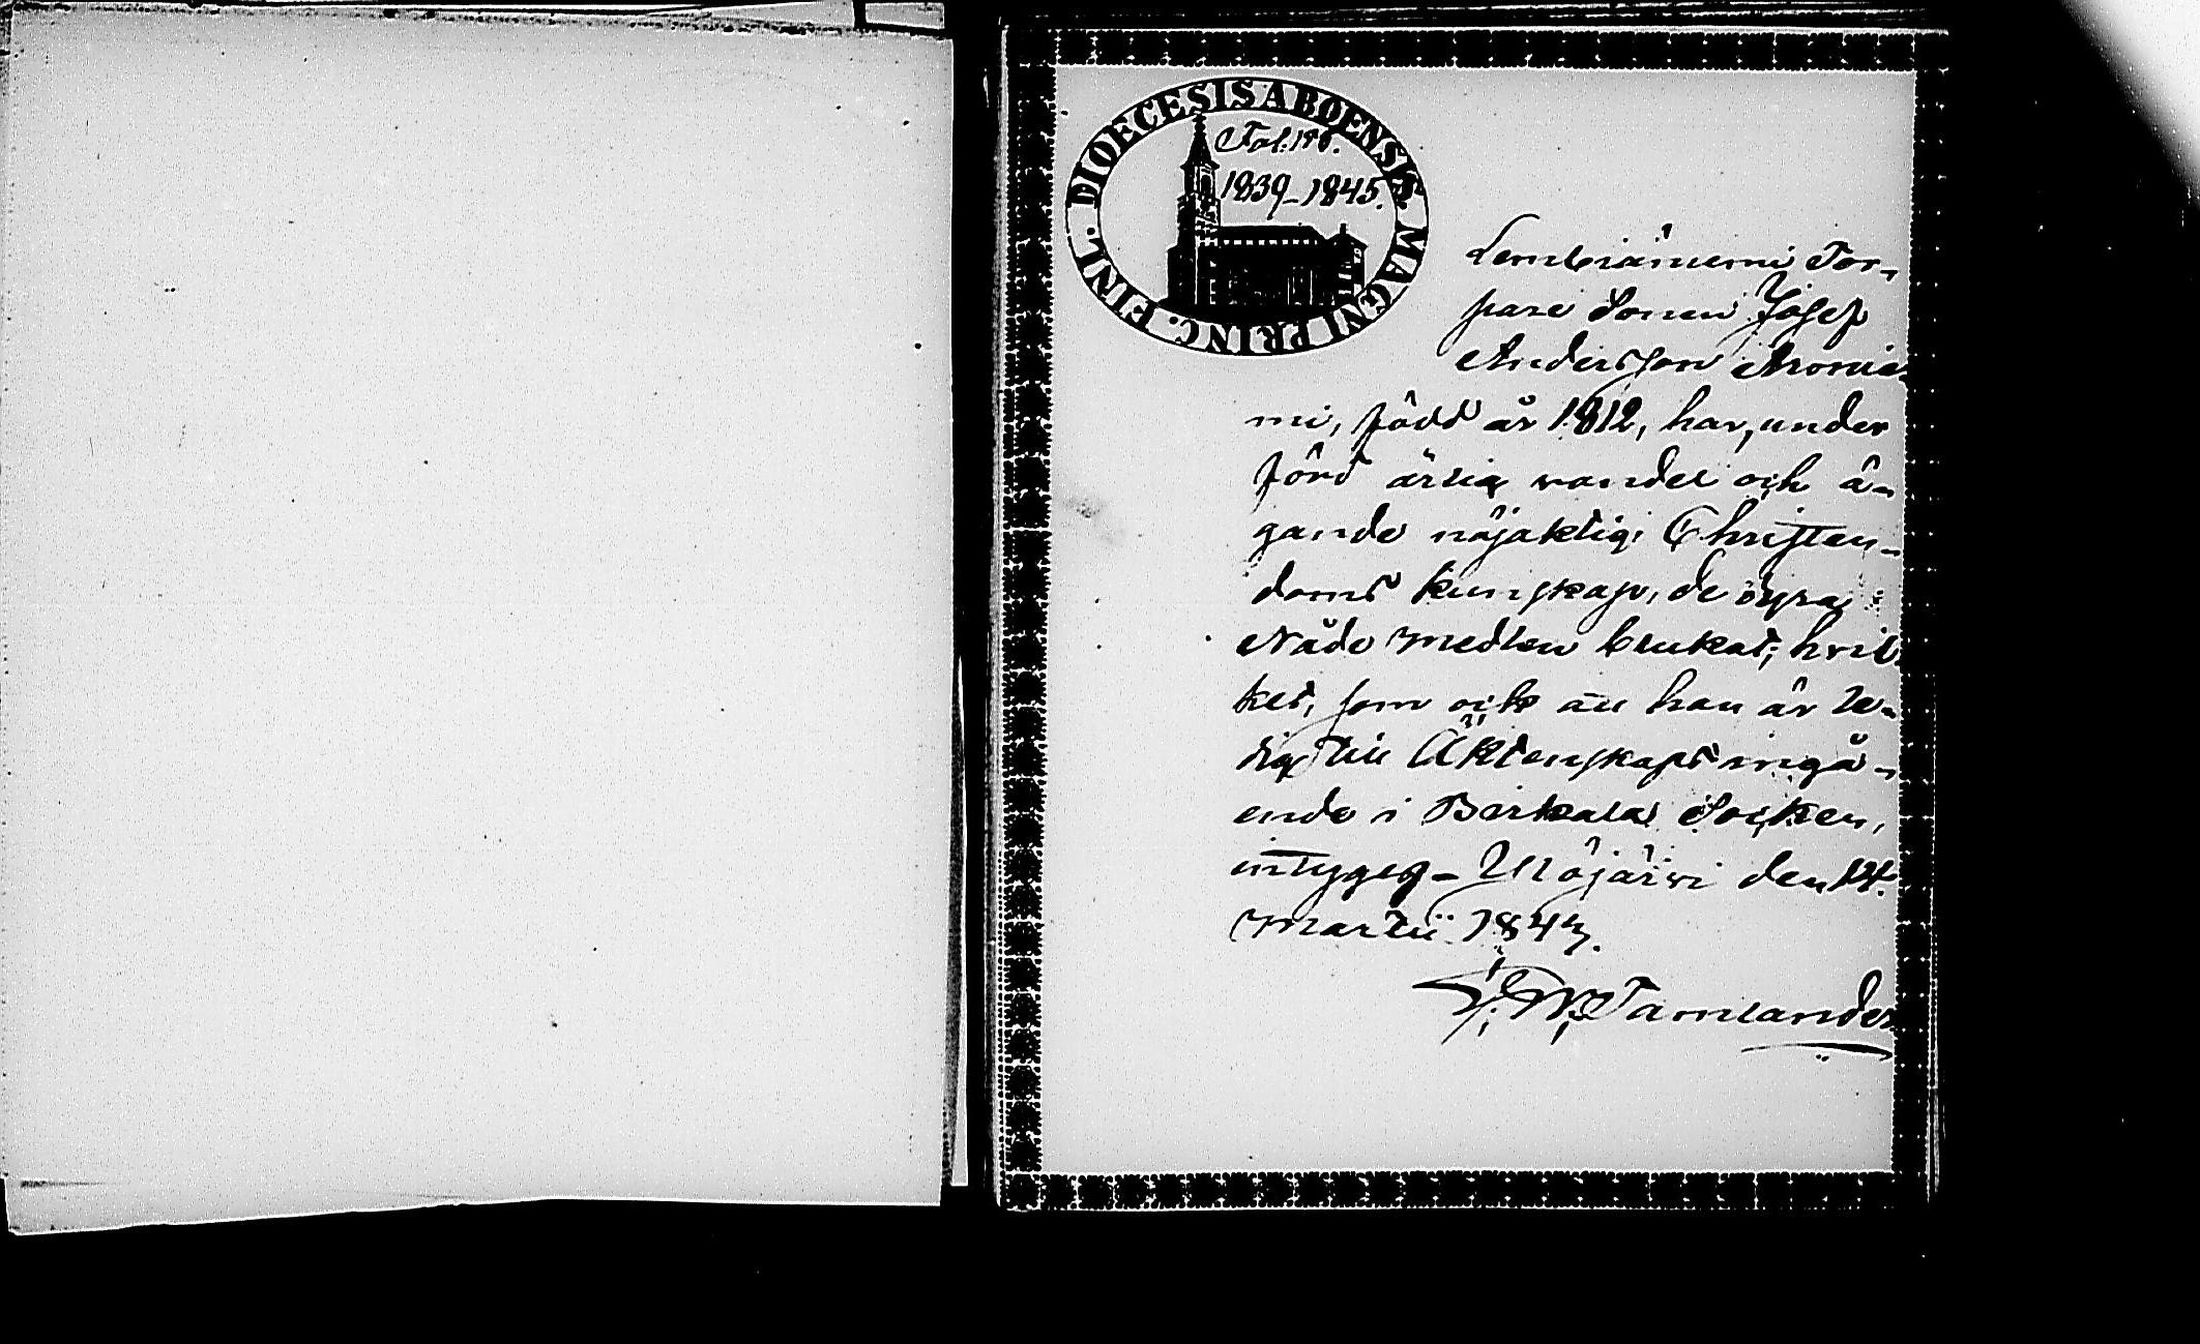 DIOECESIS ABOENSIS. MAGNI PRINC. FINL.
Fol: 198.
1839–1845.
Lembiäniemi Tor-
pare Sonen Josef
Andersson Aronie-
mi, född år 1812, har, under
förd ärlig vandel och ä-
gande nöjaktig Christen-
doms kunskap, de dyra
Nåde medlen brukat; hvil-
ket, som ock att han är le-
dig till Äktenskaps ingå-
ende i Birkala Socken,
intygas – Ylöjärvi den 14.
Martii 1843.
Tamlander